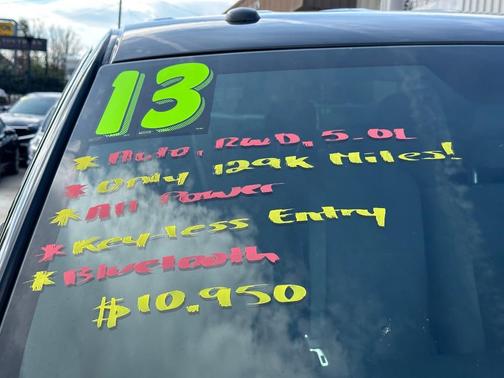 13
* Auto, RWD, 5.0L
* Only 129K Miles!
* All Power
* Key-less Entry
* Bluetooth
$10,950